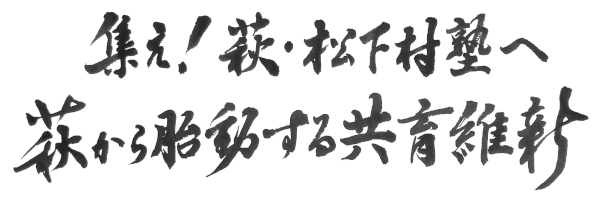 集え!萩・松下村塾へ
萩から胎動する共育維新